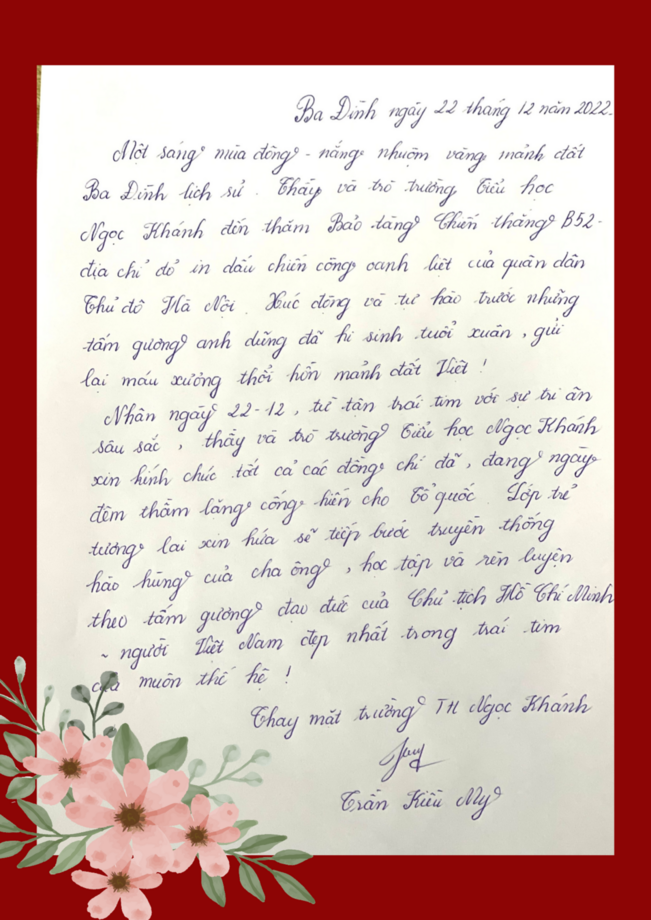 Ba Đình ngày 22 tháng 12 năm 2022.
Một sáng mùa đông - nắng nhuộm vàng mảnh đất
Ba Đình lịch sử. Thầy và trò trường Tiểu học
Ngọc Khánh đến thăm Bảo tàng Chiến thắng B52 -
địa chỉ đỏ in dấu chiến công oanh liệt của quân dân
Thủ đô Hà Nội. Xúc động và tự hào trước những
tấm gương anh dũng đã hi sinh tuổi xuân, gửi
lại máu xương thổi hồn mảnh đất Việt!
Nhân ngày 22-12, từ tận trái tim với sự tri ân
sâu sắc, thầy và trò trường Tiểu học Ngọc Khánh
xin kính chúc tất cả các đồng chí đã, đang ngày
đêm thầm lặng cống hiến cho Tổ quốc. Lớp trẻ
tương lai xin hứa sẽ tiếp bước truyền thống
hào hùng của cha ông, học tập và rèn luyện
theo tấm gương đạo đức của Chủ tịch Hồ Chí Minh
~ người Việt Nam đẹp nhất trong trái tim
của muôn thế hệ!
Thay mặt trường TH Ngọc Khánh
Trần Kiều My